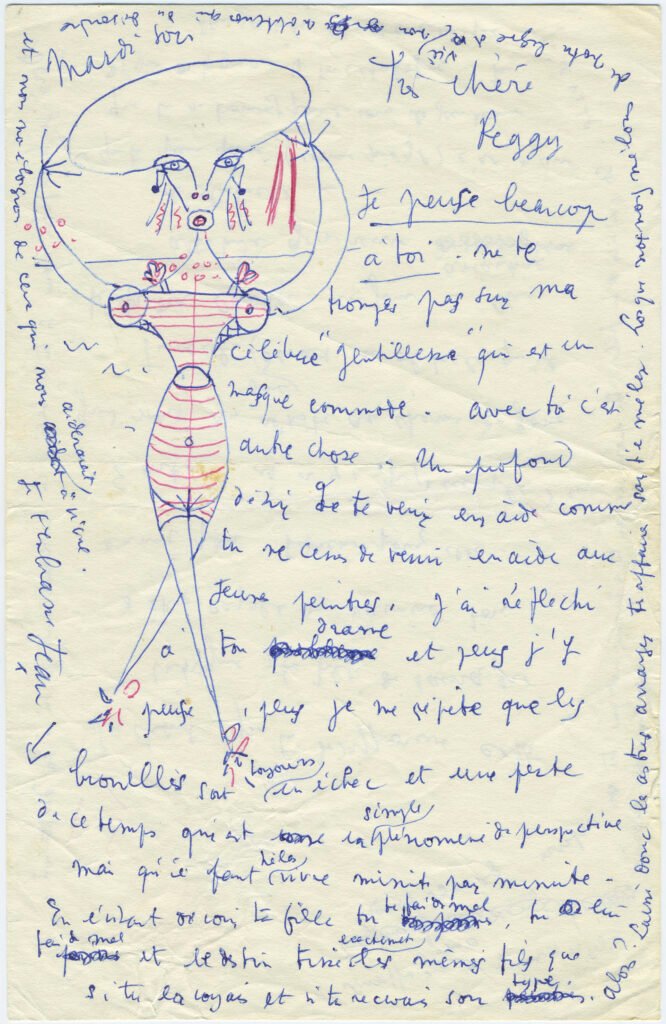 Mardi soir
Très chère
Peggy
Je pense beaucoup
à toi. ne te
trompes pas sur ma
célèbre "gentillesse" qui est un
masque commode. avec toi c'est
autre chose. Un profond
désir de te venir en aide comme
tu ne cesses de venir en aide aux
jeunes peintres. J'ai réfléchi
à ton drame et plus j'y
pense, plus je me répète que les
brouilles sont toujours un échec et une perte
de ce temps qui est un simple phénomène de perspective
mais qu'il faut hélas vivre minute par minute.
En évitant de voir ta fille tu te fais du mal, tu lui
fais du mal et le destin tire exactement les mêmes fils que
si tu la voyais et si tu recevais son type.
Alors? Laisse donc les astres arranger tes affaires sans t'en mêler. Lorsque nous nous mêlons
de notre ligne de vie, nous
et nous éloigner de ceux qui nous aideraient à vivre.
Je t'embrasse
Jean